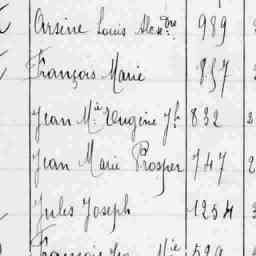 Arsène Louis Alexdre 989
François Marie 857
Jean Mie Eugène Jh 832
Jean Marie Prosper 747
Jules Joseph 1254
François